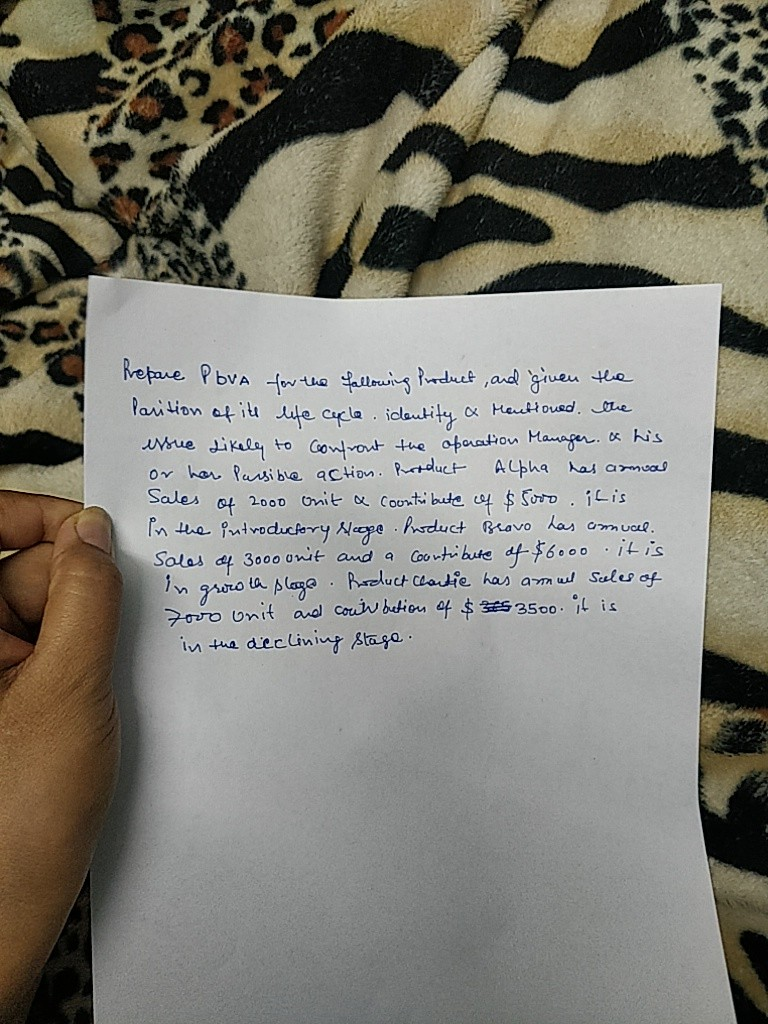 Prepare PbVA for the following Product, and given the
Position of its life cycle. identify & Mentioned. the
issue likely to Confront the operation Manager. & his
or her Possible action. Product Alpha has annual
Sales of 2000 Unit & Coontribute of $5000. it is
in the introductory stage. Product Bravo has annual.
Sales of 3000 unit and a Coontribute of $6000. it is
in growth stage. Product Charlie has annual Sales of
7000 Unit and contribution of $ 3500. it is
in the declining stage.